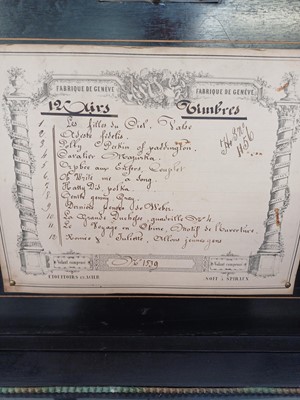 FABRIQUE DE GENÈVE FABRIQUE DE GENÈVE
12 Airs Timbres
1 Les filles du Ciel, Valse
2 Adeste fidelis
3 Polly Perkin of paddington
4 Cavalier Mazurka
5 Orphée aux Enfers, Couplet
6 Write me a Song
7 Katty Did, polka
8 Gentle young
9 Dernière pensée de Weber
10 La Grande Duchesse, quadrille No 4
11 Le Voyage en Chine, Motif de l'ouverture
12 Romeo & Juliette, Allons jeunes gens
No